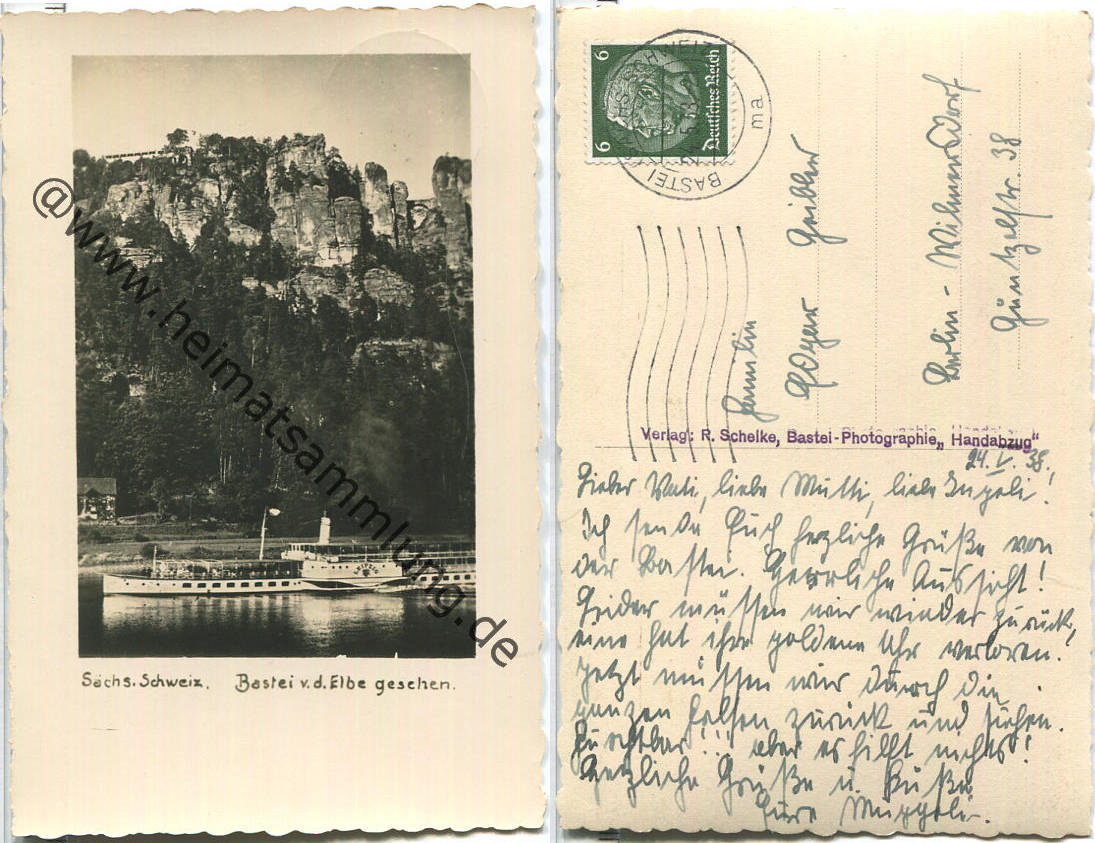 Sächs. Schweiz. Bastei v. d. Elbe gesehen.
@www.heimatsammlung.de
6 Deutsches Reich 6
BASTEI
ma
Familie
Berlin - Wilmersdorf
Güntzelstr. 38
Verlag: R. Schelke, Bastei-Photographie „Handabzug"
24. V. 38.
Lieber Vati, liebe Mutti, liebe
Ich sende Euch herzliche Grüße von
der Bastei. Herrliche Aussicht!
Leider müssen wir wieder zurück,
eine hat ihre goldene Uhr verloren.
Jetzt müssen wir durch die
ganzen Felsen zurück und suchen.
Furchtbar!!! aber es hilft nichts!
Herzliche Grüße u. Küße
Eure